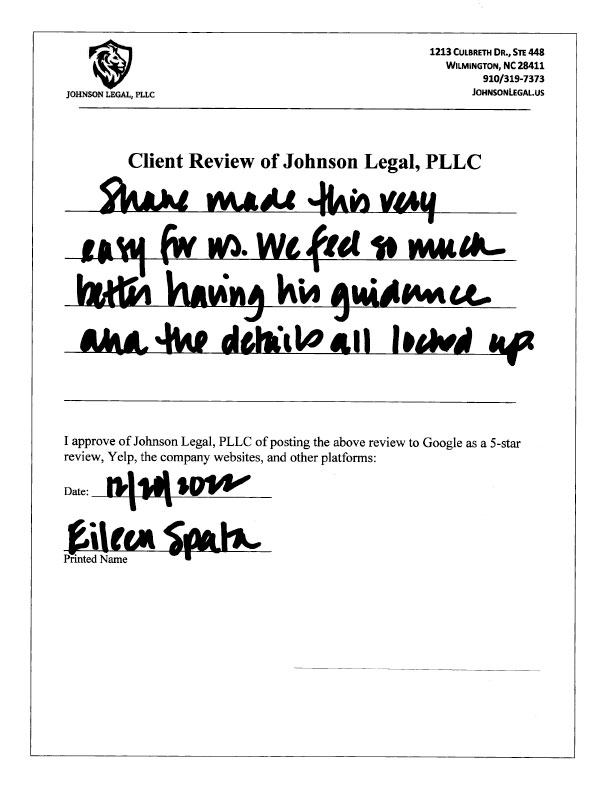 JOHNSON LEGAL, PLLC
1213 CULBRETH DR., STE 448
WILMINGTON, NC 28411
910/319-7373
JOHNSONLEGAL.US
Client Review of Johnson Legal, PLLC
Shane made this very
easy for us. We feel so much
better having his guidance
and the details all locked up.
I approve of Johnson Legal, PLLC of posting the above review to Google as a 5-star
review, Yelp, the company websites, and other platforms:
Date: 12/20/2022
Eileen Spata
Printed Name